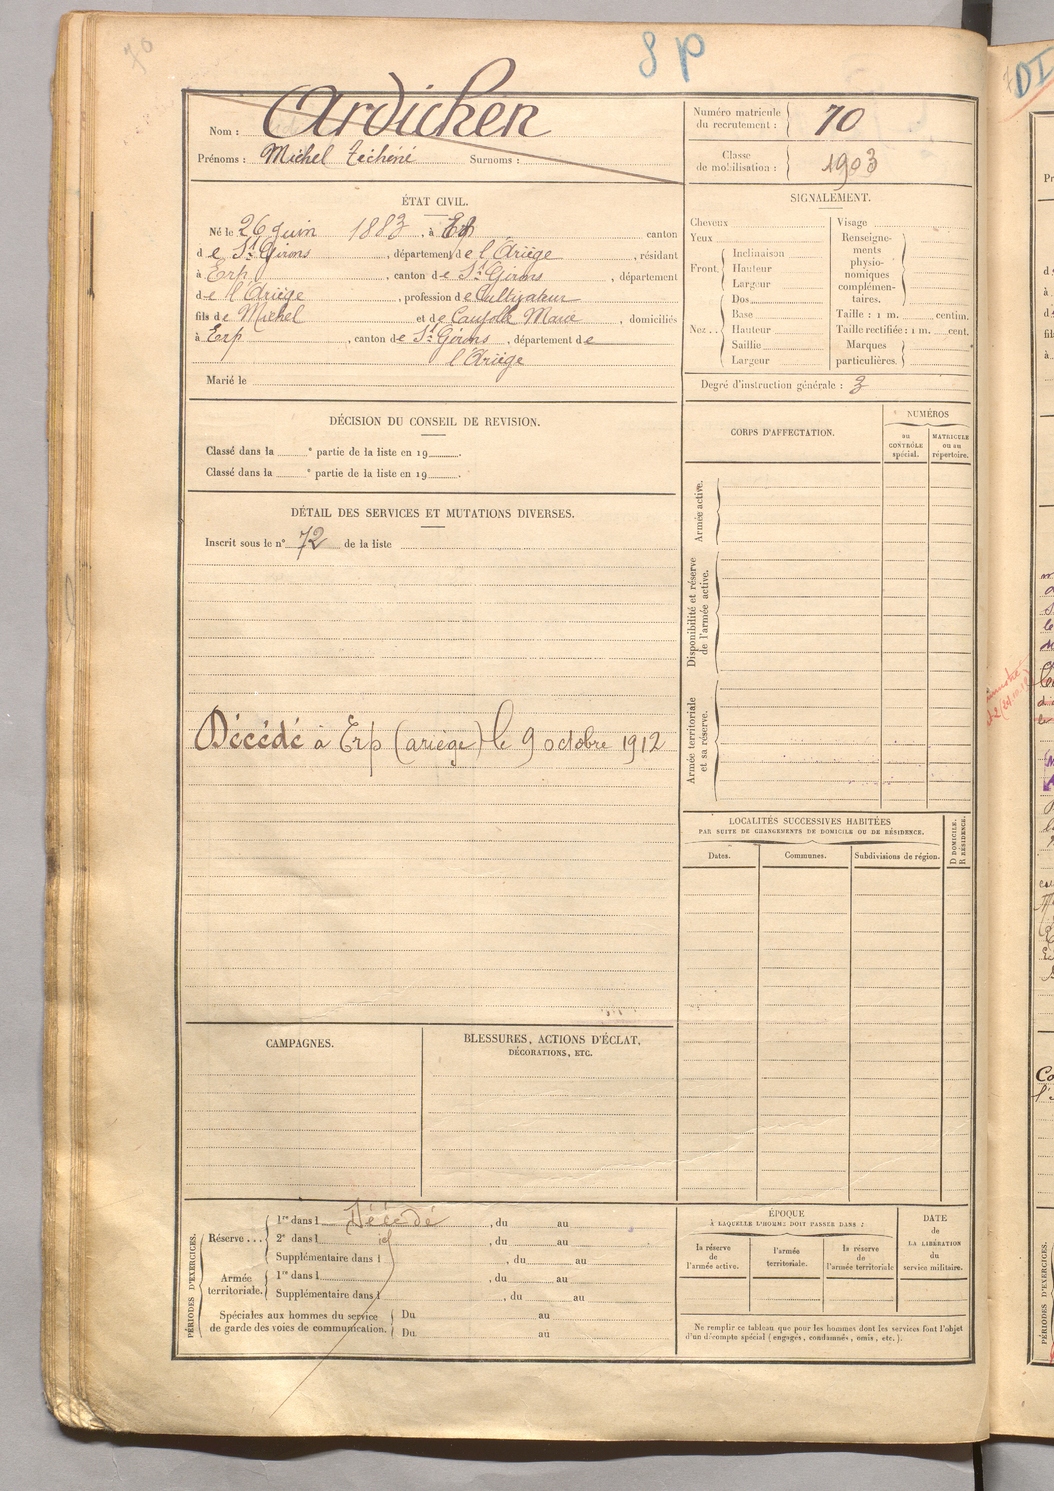 70
8 P
Nom : Ardichen
Prénoms : Michel Zéchéné Surnoms :
Numéro matricule du recrutement : 70
Classe de mobilisation : 1903
ÉTAT CIVIL.
Né le 26 Juin 1883, à Erp canton
de St Girons, département de l'Ariège, résidant
à Erp, canton de St Girons, département
de l'Ariège, profession de Cultivateur
fils de Michel et de Caujolle Marie, domiciliés
à Erp, canton de St Girons, département de
l'Ariège
Marié le
SIGNALEMENT.
Cheveux
Yeux
Front.
Inclinaison
Hauteur
Largeur
Nez..
Dos
Base
Hauteur
Saillie
Largeur
Visage
Renseigne-
ments
physio-
nomiques
complémen-
taires.
Taille : 1 m. centim.
Taille rectifiée : 1 m. cent.
Marques
particulières.
Degré d'instruction générale : 3
DÉCISION DU CONSEIL DE REVISION.
Classé dans la e partie de la liste en 19 .
Classé dans la e partie de la liste en 19 .
DÉTAIL DES SERVICES ET MUTATIONS DIVERSES.
Inscrit sous le n° 72 de la liste
Décédé à Erp (ariège) le 9 octobre 1912
CORPS D'AFFECTATION.
NUMÉROS
au
CONTRÔLE
spécial.
MATRICULE
ou au
répertoire.
Armée active.
Disponibilité et réserve
de l'armée active.
Armée territoriale
et sa réserve.
LOCALITÉS SUCCESSIVES HABITÉES
PAR SUITE DE CHANGEMENTS DE DOMICILE OU DE RÉSIDENCE.
Dates.
Communes.
Subdivisions de région.
D DOMICILE.
R RÉSIDENCE.
CAMPAGNES.
BLESSURES, ACTIONS D'ÉCLAT,
DÉCORATIONS, ETC.
PÉRIODES D'EXERCICES.
Réserve ...
1re dans l Décédé , du au
2e dans l , du au
Supplémentaire dans l , du au
Armée
territoriale.
1re dans l , du au
Supplémentaire dans l , du au
Spéciales aux hommes du service
de garde des voies de communication.
Du au
Du au
ÉPOQUE
À LAQUELLE L'HOMME DOIT PASSER DANS :
la réserve
de
l'armée active.
l'armée
territoriale.
la réserve
de
l'armée territoriale
DATE
de
LA LIBÉRATION
du
service militaire.
Ne remplir ce tableau que pour les hommes dont les services font l'objet
d'un décompte spécial (engagés, condamnés, omis, etc.).